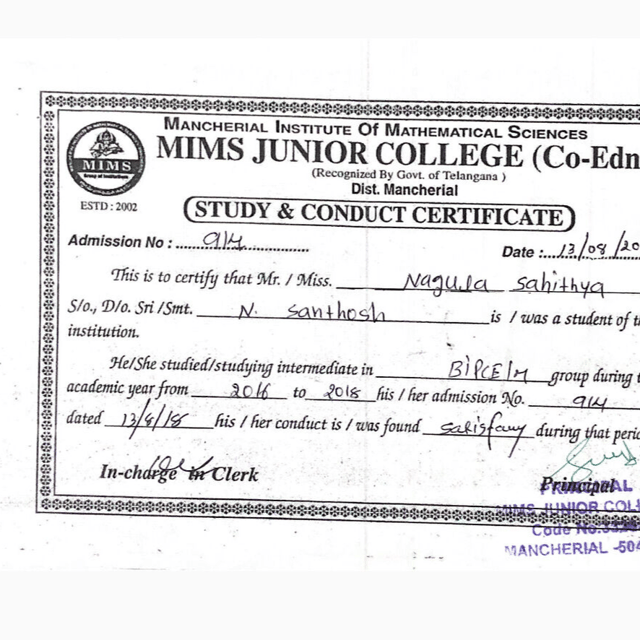 MANCHERIAL INSTITUTE OF MATHEMATICAL SCIENCES
MIMS JUNIOR COLLEGE (Co-Edn
(Recognized By Govt. of Telangana )
Dist. Mancherial
MIMS
Group of Institutions
ESTD : 2002
STUDY & CONDUCT CERTIFICATE
Admission No : 914
Date : 13/08/20
This is to certify that Mr. / Miss. Nagula Sahithya
S/o., D/o. Sri /Smt. N. Santhosh is / was a student of th
institution.
He/She studied/studying intermediate in BiPCE/M group during t
academic year from 2016 to 2018 his / her admission No. 914
dated 13/8/18 his / her conduct is / was found satisfany during that perio
In-charge in Clerk
Principal
PRINCIPAL
MIMS JUNIOR COLL
Code No.
MANCHERIAL -504